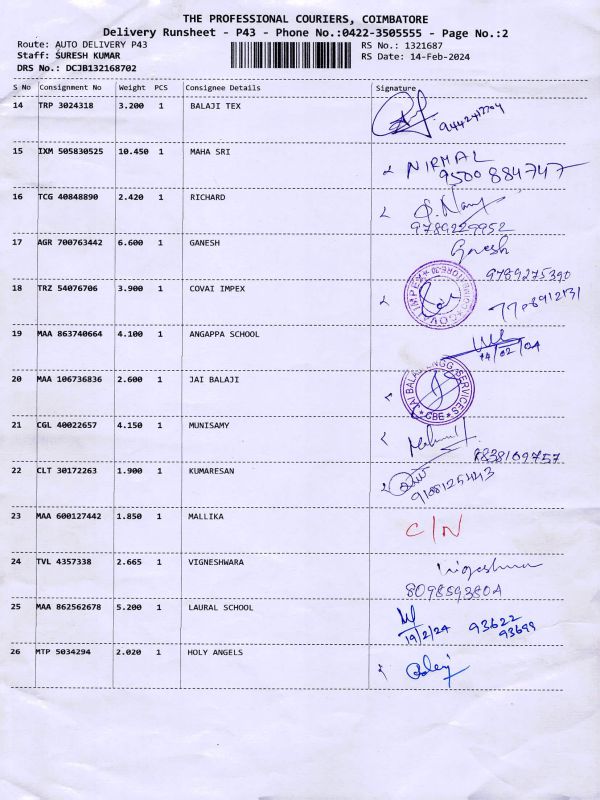 THE PROFESSIONAL COURIERS, COIMBATORE
Delivery Runsheet - P43 - Phone No.:0422-3505555 - Page No.:2
Route: AUTO DELIVERY P43 RS No.: 1321687
Staff: SURESH KUMAR RS Date: 14-Feb-2024
DRS No.: DCJB132168702
S No Consignment No Weight PCS Consignee Details Signature
14 TRP 3024318 3.200 1 BALAJI TEX
15 IXM 505830525 10.450 1 MAHA SRI NIRMAL
9500884747
16 TCG 40848890 2.420 1 RICHARD
9789229952
17 AGR 700763442 6.600 1 GANESH Ganesh
9789275390
18 TRZ 54076706 3.900 1 COVAI IMPEX
19 MAA 863740664 4.100 1 ANGAPPA SCHOOL
14/02/24
20 MAA 106736836 2.600 1 JAI BALAJI JAI BALAJI ENGG SERVICES
CBE
21 CGL 40022657 4.150 1 MUNISAMY
8838109757
22 CLT 30172263 1.900 1 KUMARESAN
23 MAA 600127442 1.850 1 MALLIKA C/N
24 TVL 4357338 2.665 1 VIGNESHWARA
8098593804
25 MAA 862562678 5.200 1 LAURAL SCHOOL
19/2/24 93622
93699
26 MTP 5034294 2.020 1 HOLY ANGELS